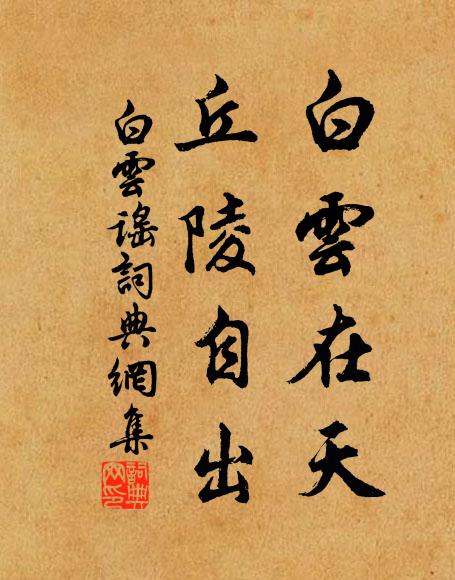 白雲在天
丘陵自出
白雲謠詞典網集
詞典
网印